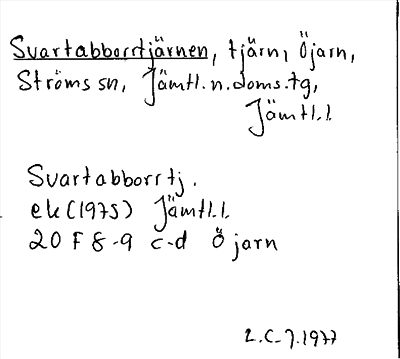 Svartabborrtjärnen, tjärn, Öjarn,
Ströms sn, Jämtl. n. doms. tg,
Jämtl. l.
Svartabborrtj.
ek (1975) Jämtl. l.
20 F 8-9 c-d Öjarn
L.C.J. 1977